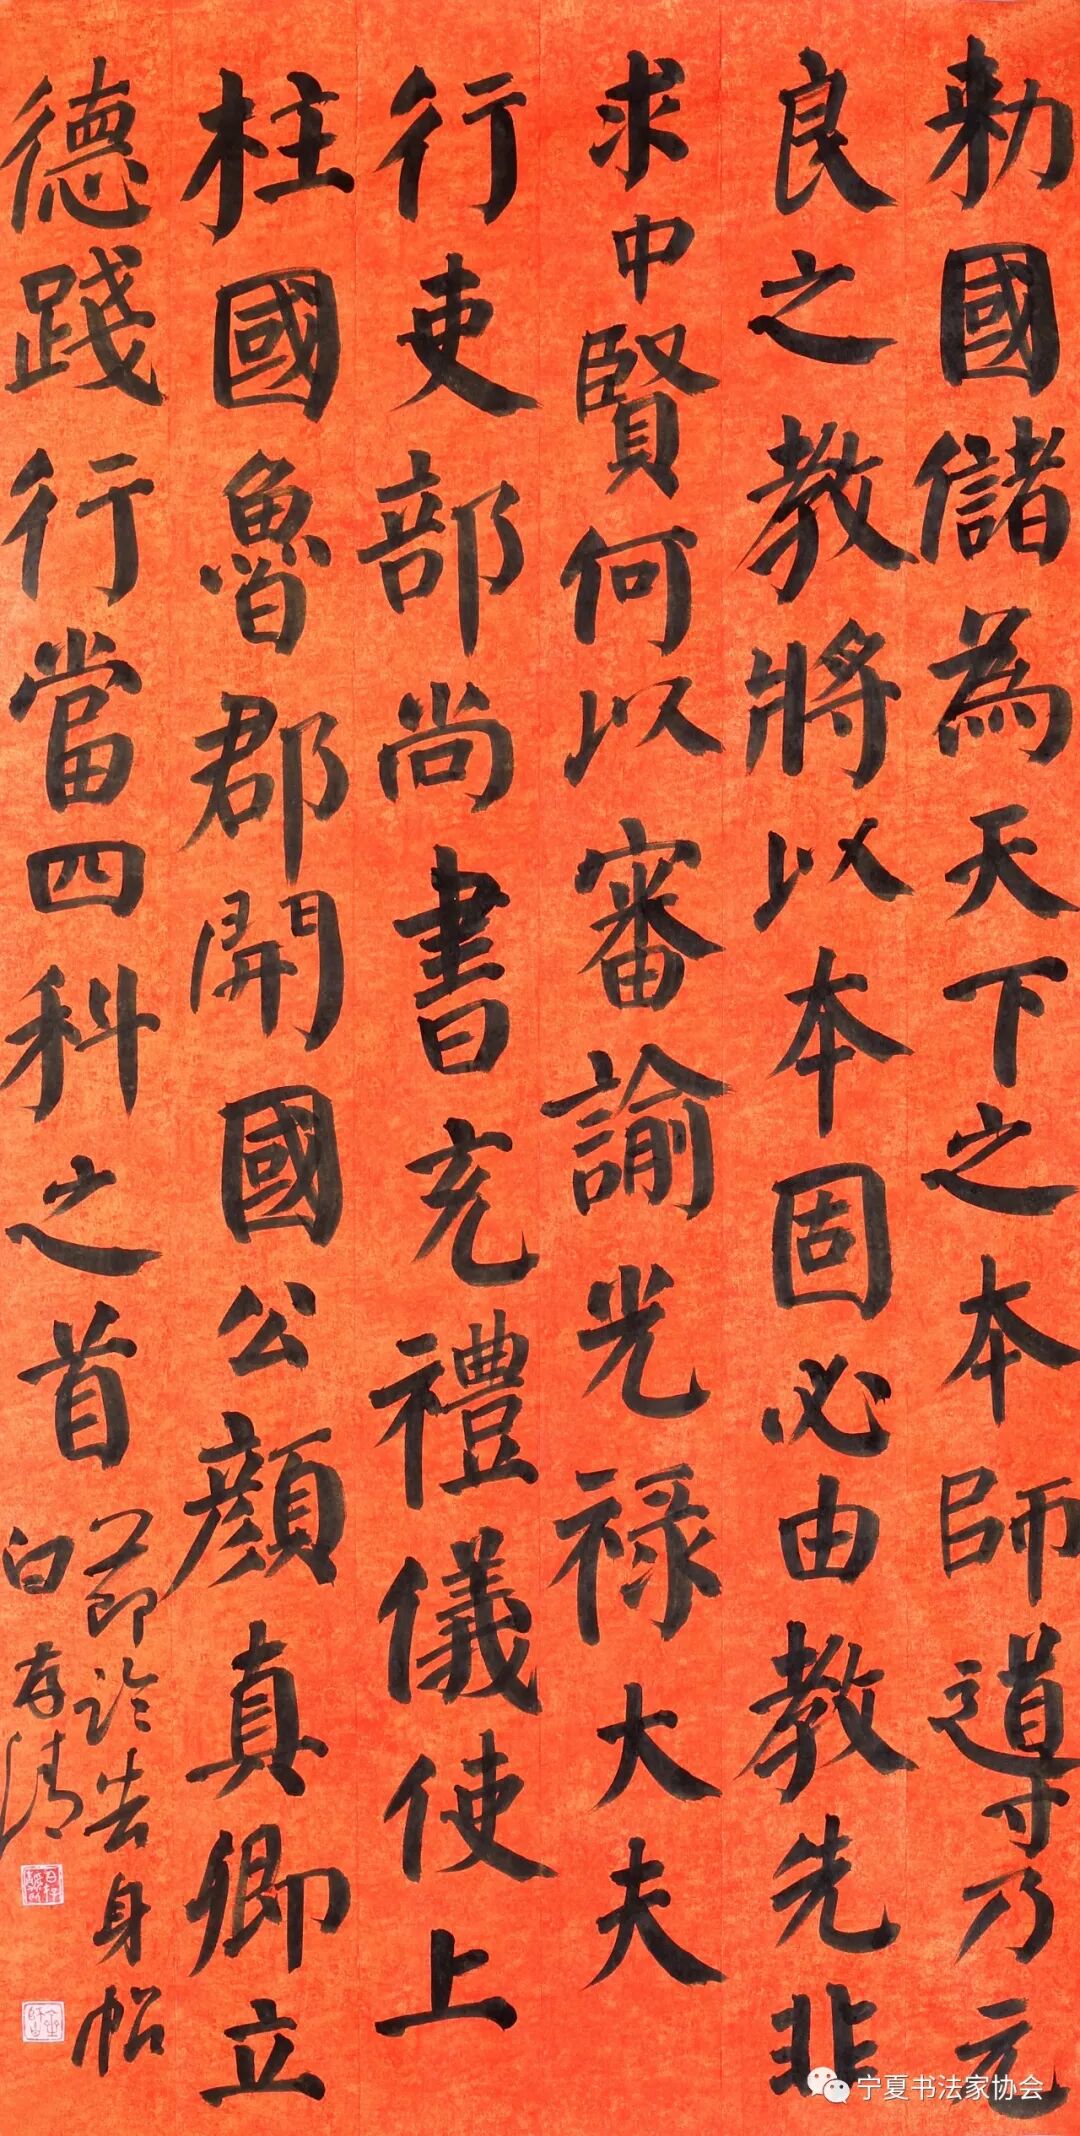 勅國儲為天下之本師導乃元
良之教將以本固必由教先非
求中賢何以審諭光祿大夫
行吏部尚書充禮儀使上
柱國魯郡開國公顏真卿立
德踐行當四科之首
節臨告身帖
白存清
宁夏书法家协会